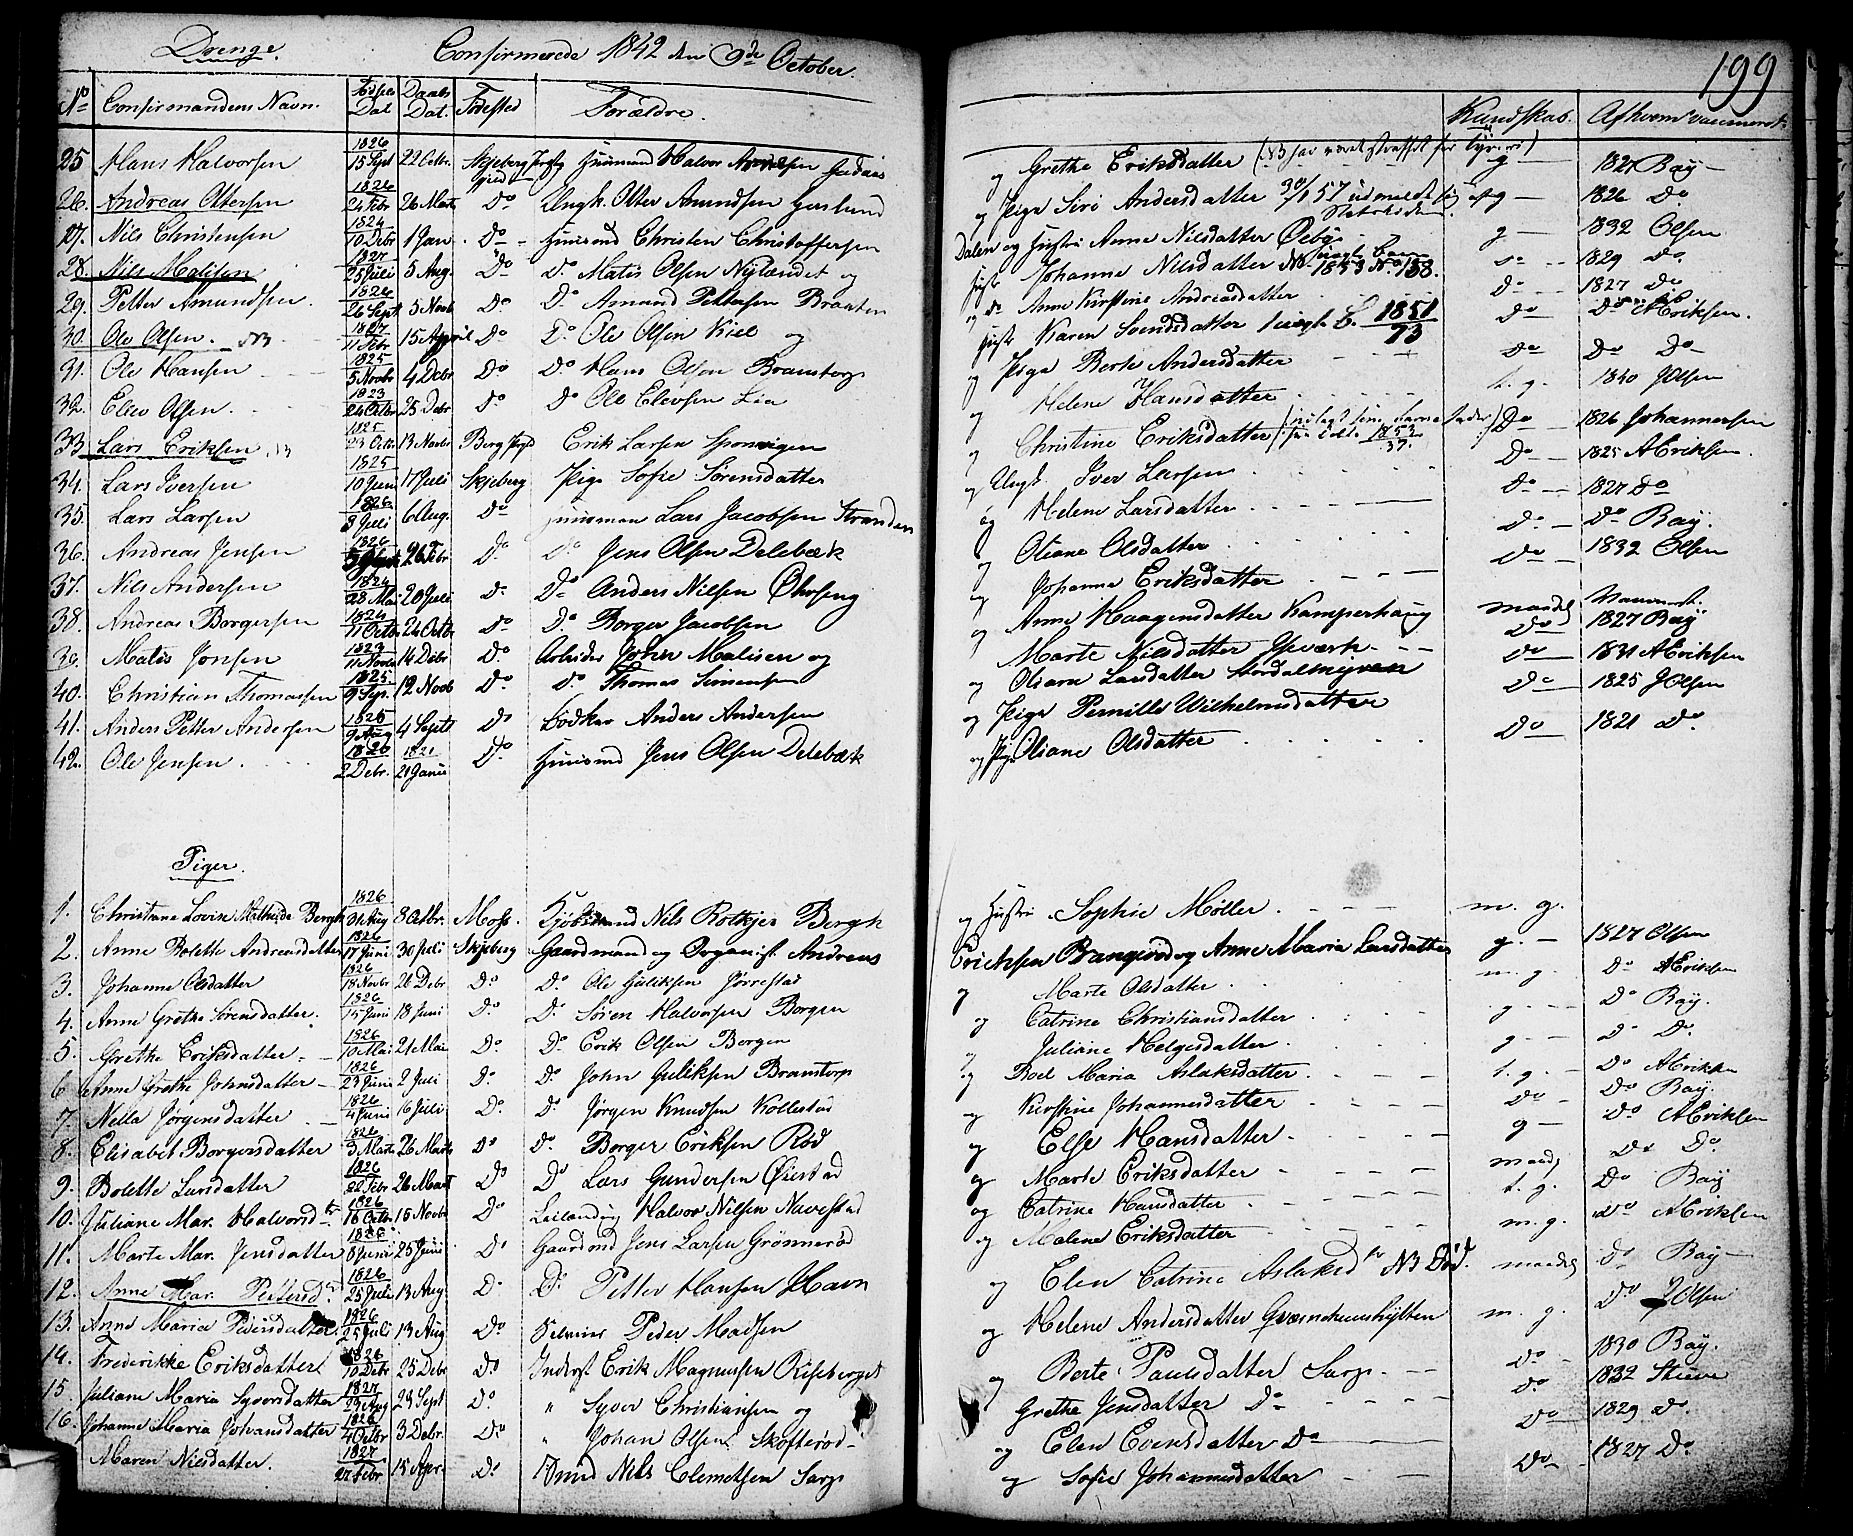 Drenge. Confirmerede 1842 den 9de October. 199
No Confirmandens Navn. Fødsels Dat Daabs Dat. Fødested Forældre. Kundskab. Af hvem vaccineret
25 Hans Halvorsen 1826 15 Sept 22 Octbr. Skjeberg Huusmand Halvor og Grethe Eriksdatter g 1827 Bay
26. Andreas Ottersen 1826 24 Febr 26 Marts Do Ungk. Otter Amundsen Haslund og Pige Siri Andersdatter 1826 Do
27. Nils Christensen 1824 10 Debr 1 Jan. Do Huusmd Christen Christoffersen Dalen og Hustri Anne Nilsdatter g 1832 Olsen
28. Nils Matisen 1827 25 Juli 5 Aug. Do Do Matis Olsen Nylændet og Hust Johanne Nilsdatter 1853 No 158. 1829 Do
29. Petter Amundsen. 1826 26 Sept 5 Novb Do Do Amund Pettersen Braaten og do Anne Kirstine Andreasdatter Do 1827 Do
30. Ole Olsen. NB 1827 11 Febr 15 April Do Do Ole Olsen Kiel og Hust Karen Svendsdatter 1851 73 Do Do AEriksen.
31. Ole Hansen 1825 5 Novbr 4 Debr Do Do Hans Olsen Bramstorp og Pige Berte Andersdatter Do Do Do
32. Elev Olsen. 1823 24 Octbr 25 Debr Do Do Ole Elevsen Lia og Helene Hansdatter t. g. 1840 JOlsen
33 Lars Eriksen NB 1825 23 Octbr 13 Novbr Berg Erik Larsen Sponvigen og Christine Eriksdatter 1853 37. Do 1826 Johannessen
34. Lars Iversen 1825 10 Juni 17 Juli Skjeberg Pige Sofie Sørensdatter og Ungk Iver Larsen Do 1825 AEriksen.
35. Lars Larsen 1826 8 Juli 6 Aug. Do Huusman Lars Jacobsen Stranden og Helene Larsdatter Do 1827 Do
36. Andreas Jensen 1826 26 Febr Do Do Jens Olsen Delebæk og Oliane Olsdatter Do Do Bay.
37. Nils Andersen 1824 28 Mai 20 Juli Do Do Anders Nilsen og Johanne Eriksdatter Do 1832 Olsen
38. Andreas Borgersen 1824 11 Octbr 24 Octbr Do Do Borger Jacobsen og Anne Haagensdatter Kamperhaug maadel 1827 Bay
39. Matis Jonsen 1823 11 Novbr 14 Debr Do Arbeider Joren Matisen og Marte Nilsdatter Do 1831 AEriksen
40. Christian Thomassen 1825 9 Sep. 12 Novb Do Do Thomas Simensen og Oliane Larsdatter Do 1825 JOlsen
41. Anders Petter Andersen 1825 9 Aug 4 Septb Do Bødker Anders Andersen og Pige Pernille Wilhelmsdatter Do 1821 Do
42. Ole Jensen 1820 2 Debr. 1821 21 Janu Do Huusmd Jens Olsen Delebæk og Pige Oliane Olsdatter
Piger.
1. Christiane Lovise Mathilde Bergh 1826 31 Aug 8 Octbr. Moss. Kjøbmand Nils Rotkjer Bergh og Hustri Sophie Møller. m. g.
2. Anne Bolette Andreasdatter 1826 17 Juni 30 Juli Skjeberg Gaardmand og Organist Andreas Erichsen og Anne Maria Larsdatter g. 1827 Olsen
3. Johanne Olsdatter 1826 18 Novbr 26 Debr Do Do Ole Guliksen Jørrestad og Marte Olsdatter m. g. Do AEriksen
4. Anne Grethe Sørensdatter. 1826 15 Juni 18 Juni Do Do Søren Halvorsen Borgen og Catrine Christiansdatter g. Do Bay.
5. Grethe Eriksdatter 1826 10 Mai 21 Mai Do Do Erik Olsen Borgen og Juliane Helgesdatter g Do Do
6 Anne Grethe Johnsdatter 1826 23 Juni 2 Juli Do Do John Guliksen Bramstorp og Boel Maria Aslaksdatter t. g. Do AEriksen
7. Nella Jørgensdatter 1826 4 Juni 16 Juli Do Do Jørgen Knudsen Kollestad og Kirstine Johannesdatter Do Do Bay.
8. Elisabet Borgersdatter 1826 3 Marts 26 Marts Do Do Borger Eriksen Rød og Else Hansdatter g Do AEriksen
9. Bolette Larsdatter 1826 22 Febr 26 Mart Do Do Lars Gundersen Øiestad og Marte Eriksdatter maadel Do Do
10. Juliane Mar. Halvorsdtr 1826 16 Octbr 15 Novbr Do Leilænding Halvor Nilsen Navestad og Catrine Hansdatter t. g. Do Bay
11. Marte Mar. Jensdatter 1826 8 Juni 25 Juni Do Gaardmd Jens Larsen Grønnerød og Malene Eriksdatter m. g. Do AEriksen
12. Anne Mar. Pettersd. 1826 25 Juli 13 Aug Do Do Petter Hansen Havn og Elen Catrine Aslaksdtr NB Død. maadel Do Bay
13. Anne Maria Pedersdatter 1826 25 Juli 13 Aug Do Selveier Peder Madsen og Helene Andersdatter m. g. Do JOlsen
14. Frederikke Eriksdatter 1826 10 Debr 25 Debr Do Inderst Erik Magnussen Riseberget og Berte Paulsdatter Sarp Do 1830 Bay.
15. Juliane Maria Syversdatter 1827 23 Aug 23 Sept Do " Syver Christiansen og Grethe Jensdatter Do Do 1832 Stieve
16. Johanne Maria Johansdatter 1826 4 Octbr 3 Debr. Do " Johan Olsen Skofterød og Elen Evensdatter Do Do 1829 Do
Maren Nilsdatter. 1827 27 Febr 15 Apr. Do Nils Clemetsen Sarp og Sofie Johannesdatter Do 1827 Do